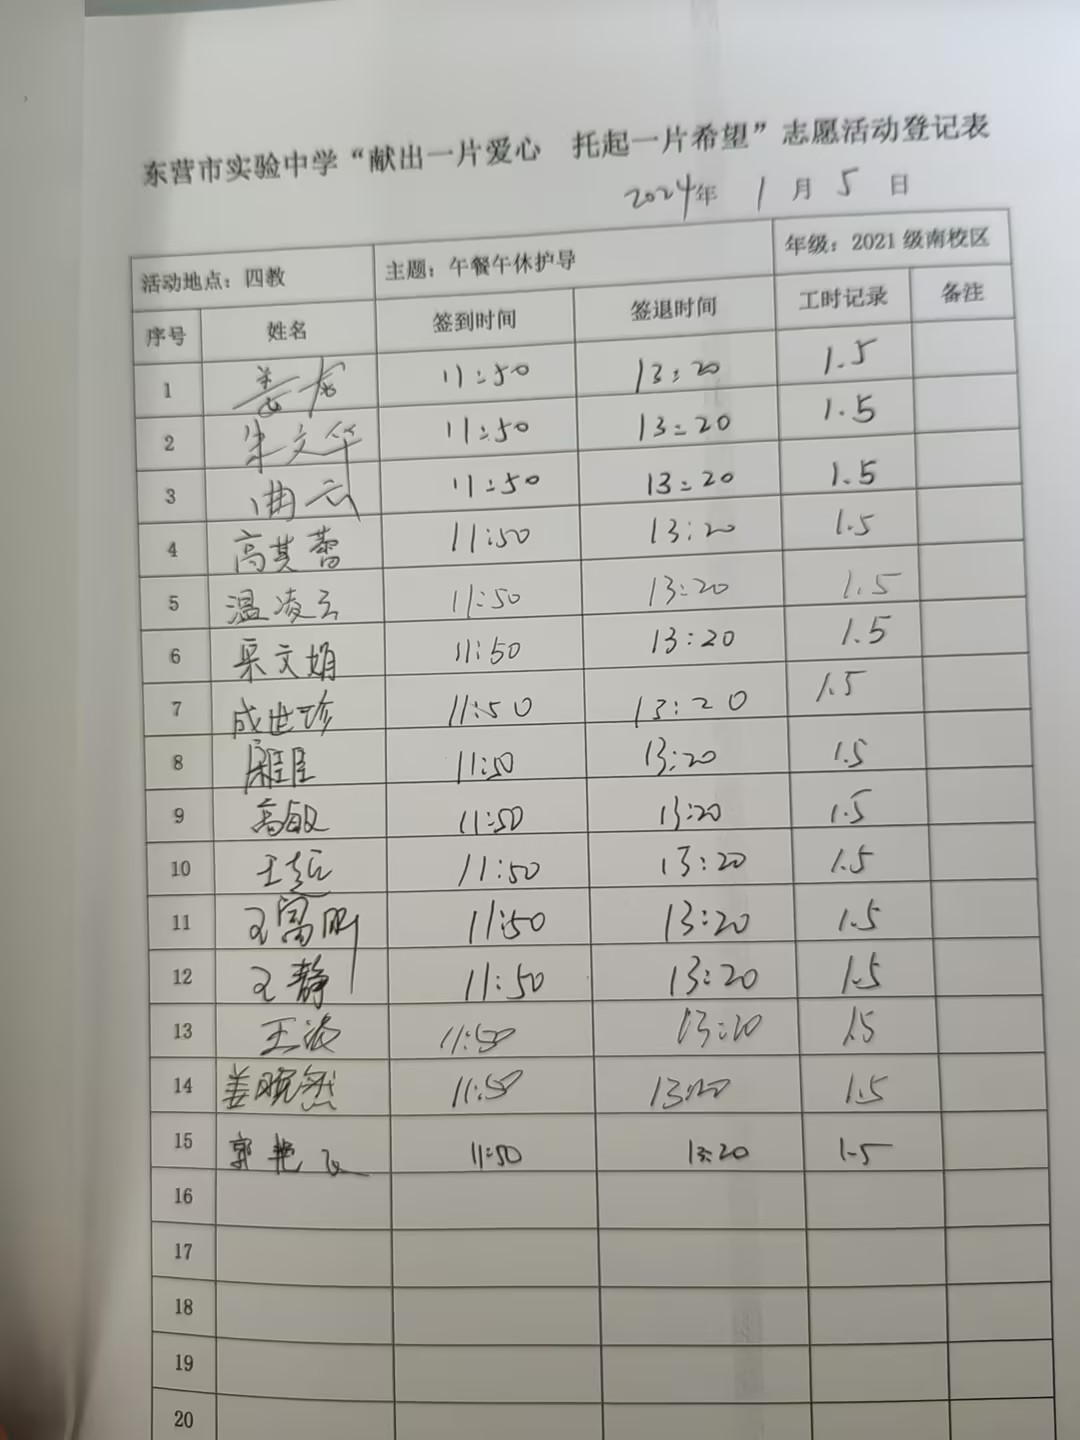 东营市实验中学“献出一片爱心 托起一片希望”志愿活动登记表
2024年 1月 5日
活动地点：四教 主题：午餐午休护导 年级：2021级南校区
序号 姓名 签到时间 签退时间 工时记录 备注
1 11:50 13:20 1.5
2 朱文华 11:50 13:20 1.5
3 曲云 11:50 13:20 1.5
4 高其蕾 11:50 13:20 1.5
5 温凌云 11:50 13:20 1.5
6 采文娟 11:50 13:20 1.5
7 成世珍 11:50 13:20 1.5
8 11:50 13:20 1.5
9 高敏 11:50 13:20 1.5
10 王超 11:50 13:20 1.5
11 王富刚 11:50 13:20 1.5
12 王静 11:50 13:20 1.5
13 王波 11:50 13:20 1.5
14 姜晓然 11:50 13:20 1.5
15 郭艳飞 11:50 13:20 1.5
16
17
18
19
20